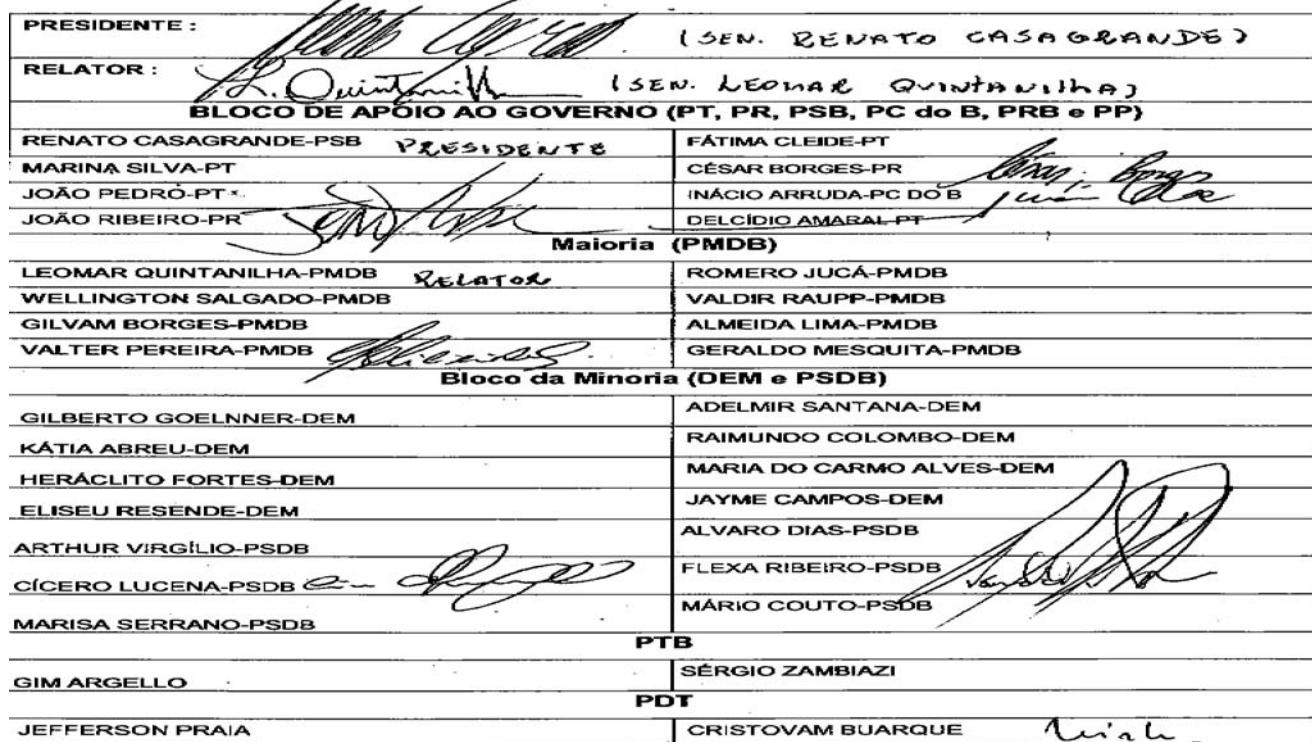 PRESIDENTE : (SEN. RENATO CASAGRANDE)
RELATOR : L. Quintanilha (SEN. LEOMAR QUINTANILHA)
BLOCO DE APOIO AO GOVERNO (PT, PR, PSB, PC do B, PRB e PP)
RENATO CASAGRANDE-PSB PRESIDENTE FÁTIMA CLEIDE-PT
MARINA SILVA-PT CÉSAR BORGES-PR César Borges
JOÃO PEDRO-PT INÁCIO ARRUDA-PC DO B
JOÃO RIBEIRO-PR DELCÍDIO AMARAL-PT
Maioria (PMDB)
LEOMAR QUINTANILHA-PMDB RELATOR ROMERO JUCÁ-PMDB
WELLINGTON SALGADO-PMDB VALDIR RAUPP-PMDB
GILVAM BORGES-PMDB ALMEIDA LIMA-PMDB
VALTER PEREIRA-PMDB GERALDO MESQUITA-PMDB
Bloco da Minoria (DEM e PSDB)
GILBERTO GOELNNER-DEM ADELMIR SANTANA-DEM
KÁTIA ABREU-DEM RAIMUNDO COLOMBO-DEM
HERÁCLITO FORTES-DEM MARIA DO CARMO ALVES-DEM
ELISEU RESENDE-DEM JAYME CAMPOS-DEM
ARTHUR VIRGÍLIO-PSDB ALVARO DIAS-PSDB
CÍCERO LUCENA-PSDB FLEXA RIBEIRO-PSDB
MARISA SERRANO-PSDB MÁRIO COUTO-PSDB
PTB
GIM ARGELLO SÉRGIO ZAMBIAZI
PDT
JEFFERSON PRAIA CRISTOVAM BUARQUE